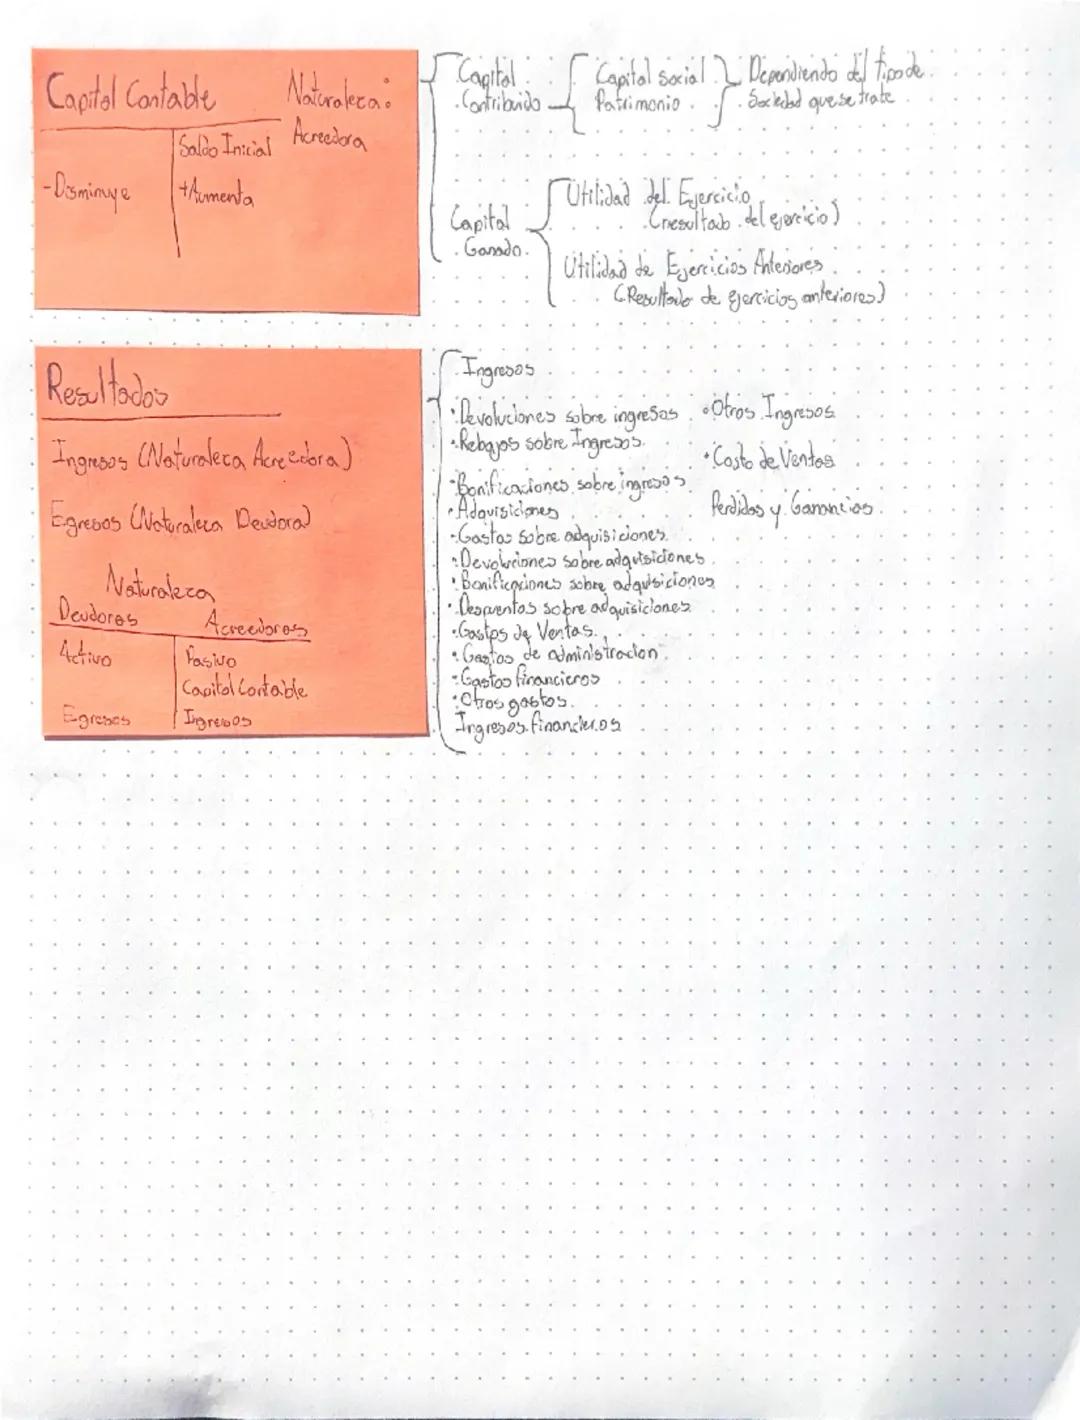 Capital Contable
Naturaleza:
Acreedora
Saldo Inicial
-Disminuye
+Aumenta
Capital
Contribuido
Capital social
Patrimonio
Dependiendo del tipo de
Sociedad que se trate
Capital
Ganado
Utilidad del Ejercicio
(resultado del ejercicio)
Utilidad de Ejercicios Anteriores
(Resultado de ejercicios anteriores)
Resultados
Ingresos (Naturaleza Acreedora)
Egresos (Naturaleza Deudora)
Naturaleza
Deudores
Acreedores
Activo
Pasivo
Capital Contable
Egresos
Ingresos
Ingresos
·Devoluciones sobre ingresos
·Rebajas sobre Ingresos
·Bonificaciones sobre ingresos
·Adquisiciones
·Gastos sobre adquisiciones
·Devoluciones sobre adquisiciones
·Bonificaciones sobre adquisiciones
·Descuentos sobre adquisiciones
·Gastos de Ventas
·Gastos de administracion
·Gastos financieros
·Otros gastos
Ingresos financieros
·Otros Ingresos
·Costo de Ventas
Perdidas y Ganancias